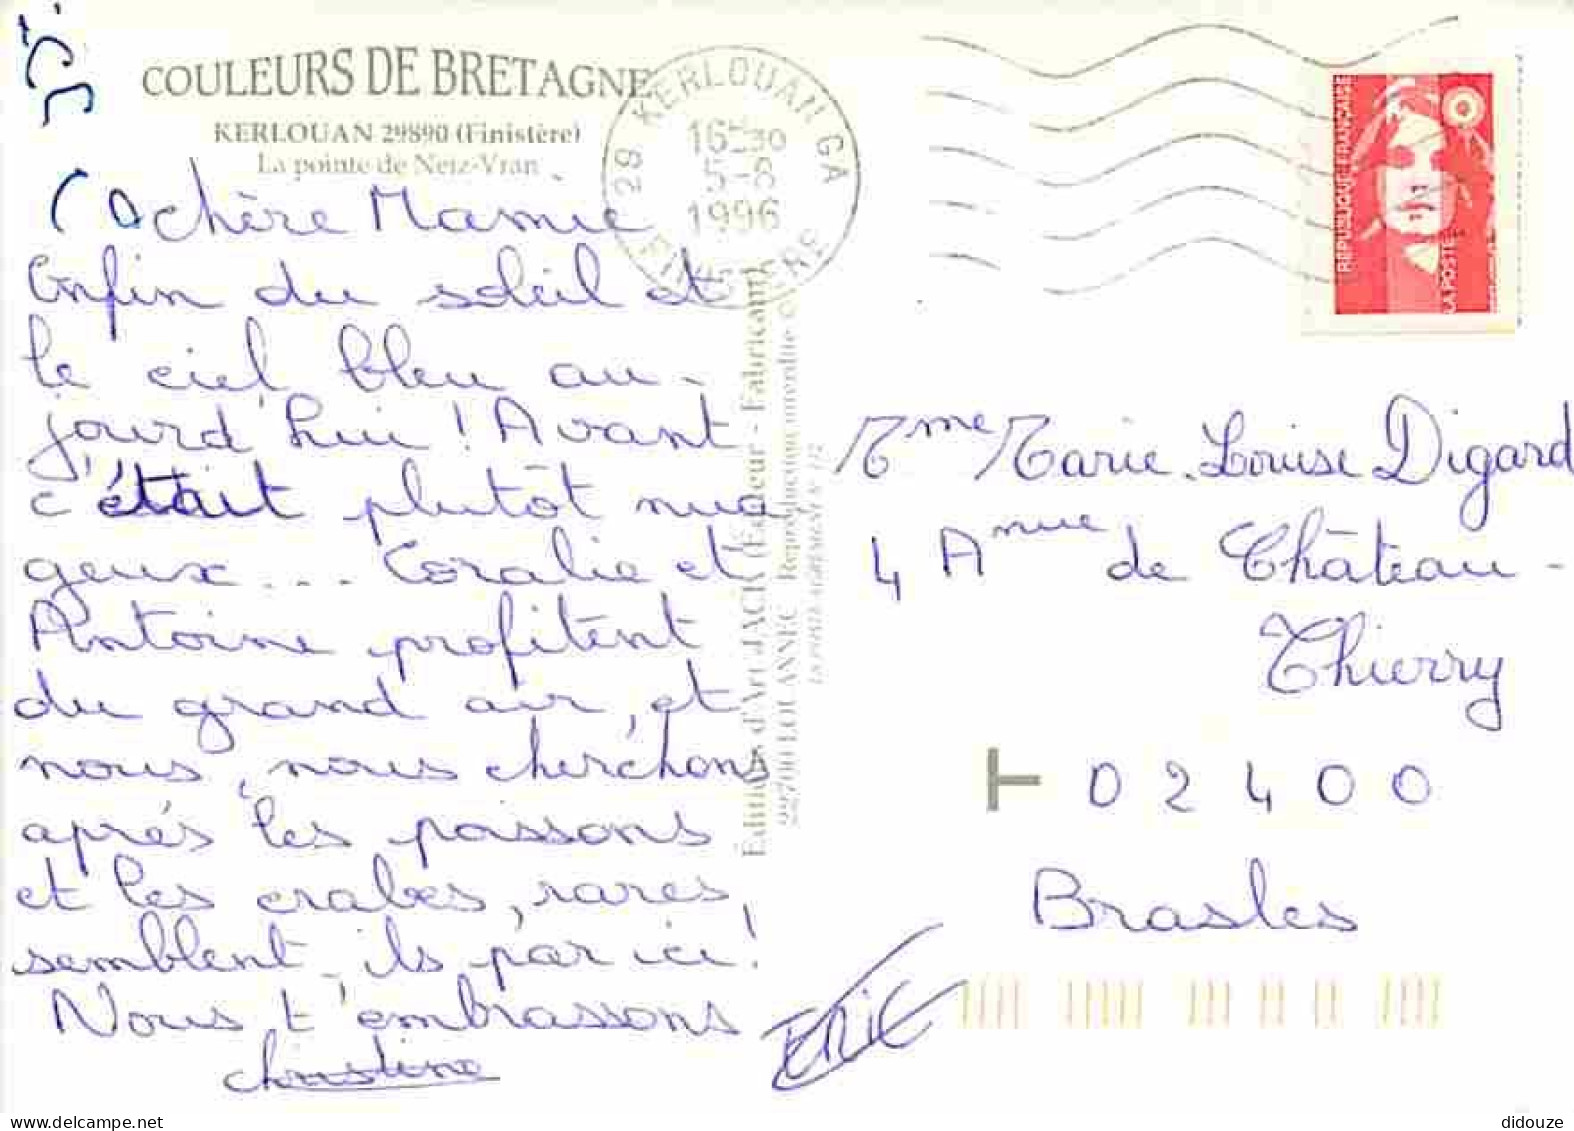 COULEURS DE BRETAGNE
KERLOUAN 29890 (Finistère)
La pointe de Neiz-Vran
chère Mamie
Enfin du soleil et
le ciel bleu au-
jourd'hui ! Avant
c'était plutôt nua
geux.... Coralie et
Antoine profitent
du grand air, et
nous, nous cherchons
après les poissons
et les crabes, rares,
semblent-ils par ici !
Nous t'embrassons
christine
ERIC
KERLOUAN GA
29
16H30
5-8
1996
FINISTERE
RÉPUBLIQUE FRANÇAISE
LA POSTE
Editions d'Art JACK (Editeur - Fabricant)
22700 LOUANNEC Reproduction interdite ©
Mme Marie-Louise Digard
4 Avenue de Château-
Thierry
02400
Brasles
didouze